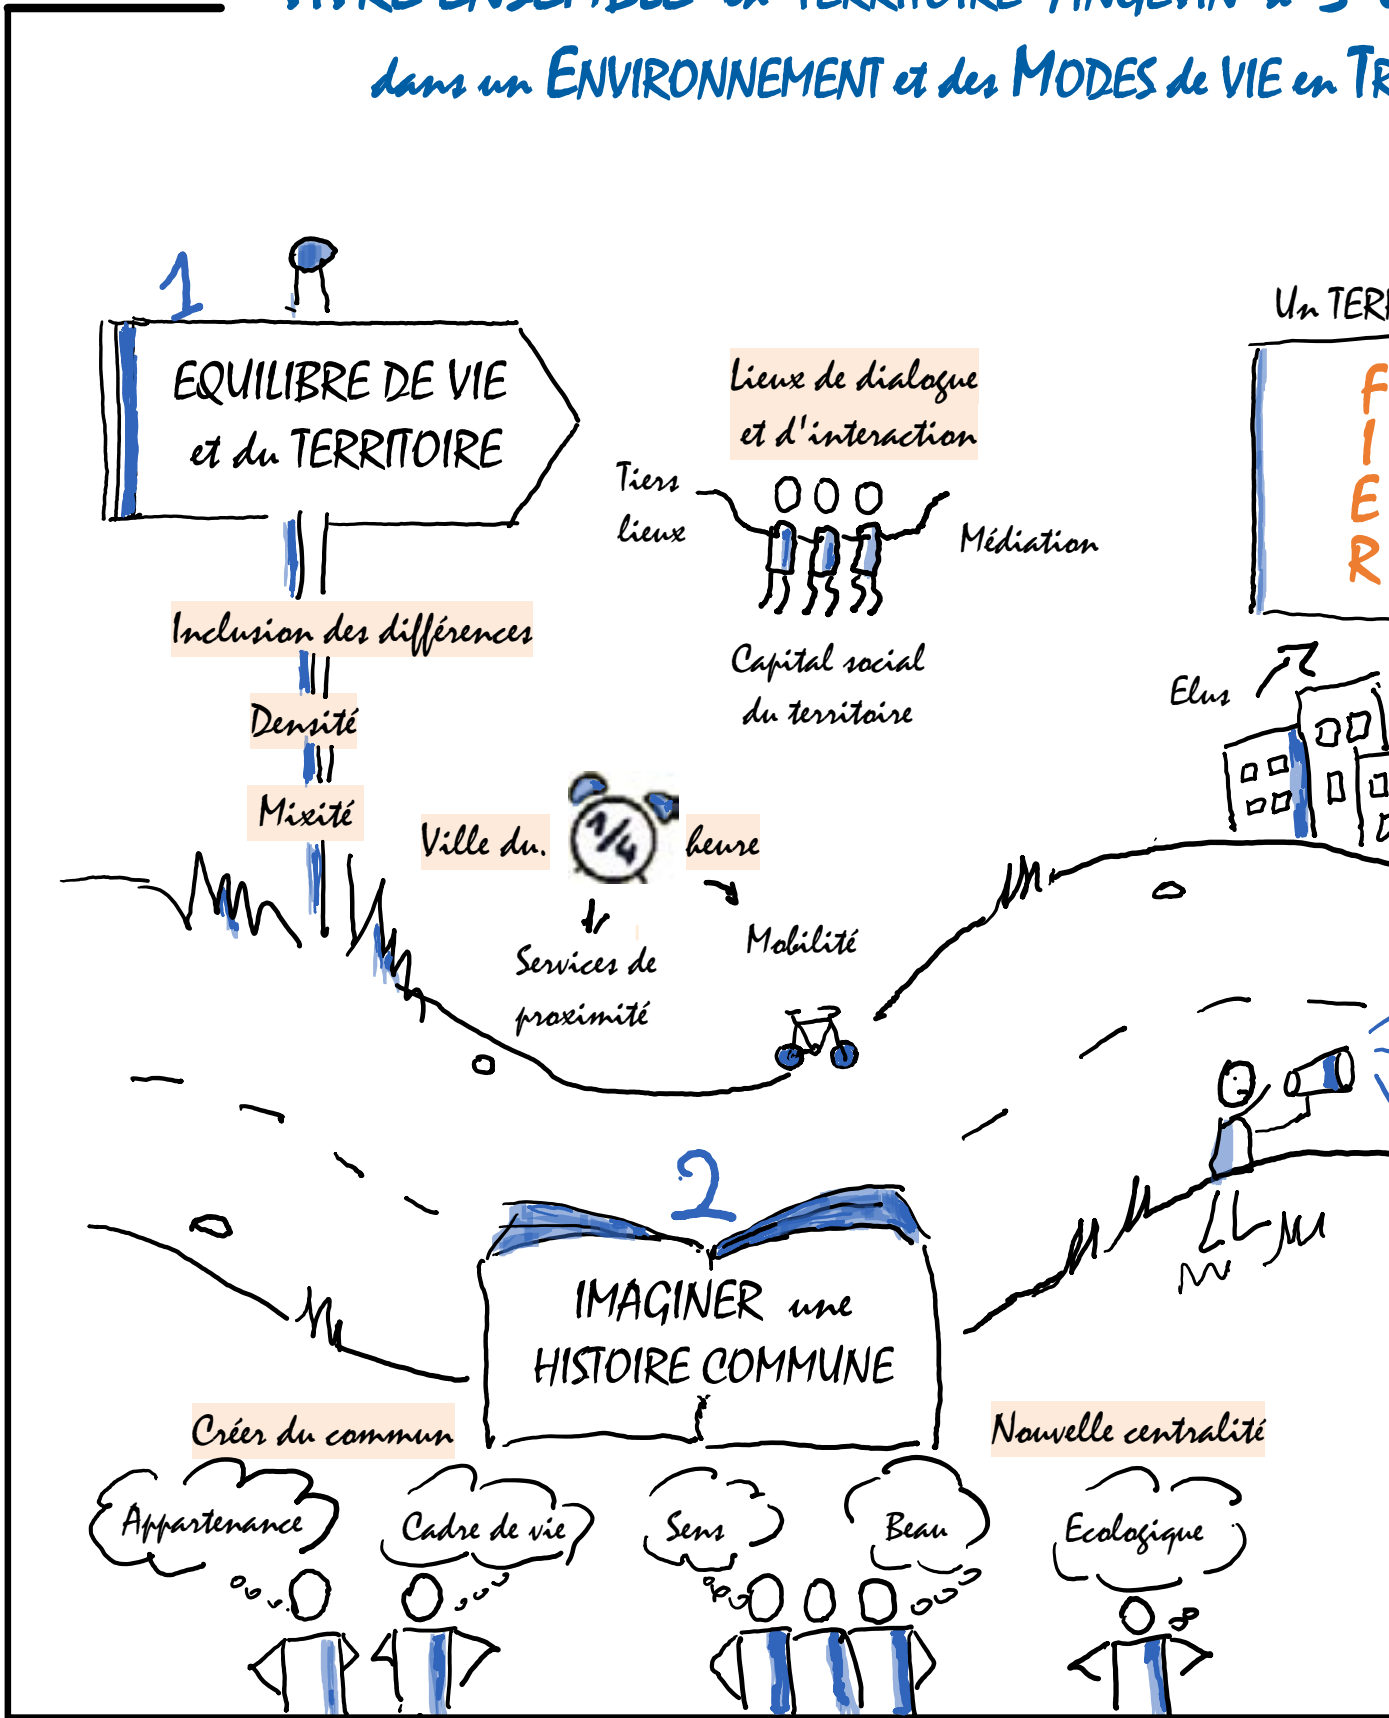 VIVRE ENSEMBLE le TERRITOIRE ANGEVIN à 3
dans un ENVIRONNEMENT et des MODES de VIE en TR
1
EQUILIBRE DE VIE
et du TERRITOIRE
Inclusion des différences
Densité
Mixité
Lieux de dialogue
et d'interaction
Tiers
lieux
Médiation
Capital social
du territoire
Ville du. 1/4 heure
Services de
proximité
Mobilité
Un TERR
F
I
E
R
Elus
2
IMAGINER une
HISTOIRE COMMUNE
Créer du commun
Nouvelle centralité
Appartenance
Cadre de vie
Sens
Beau
Ecologique